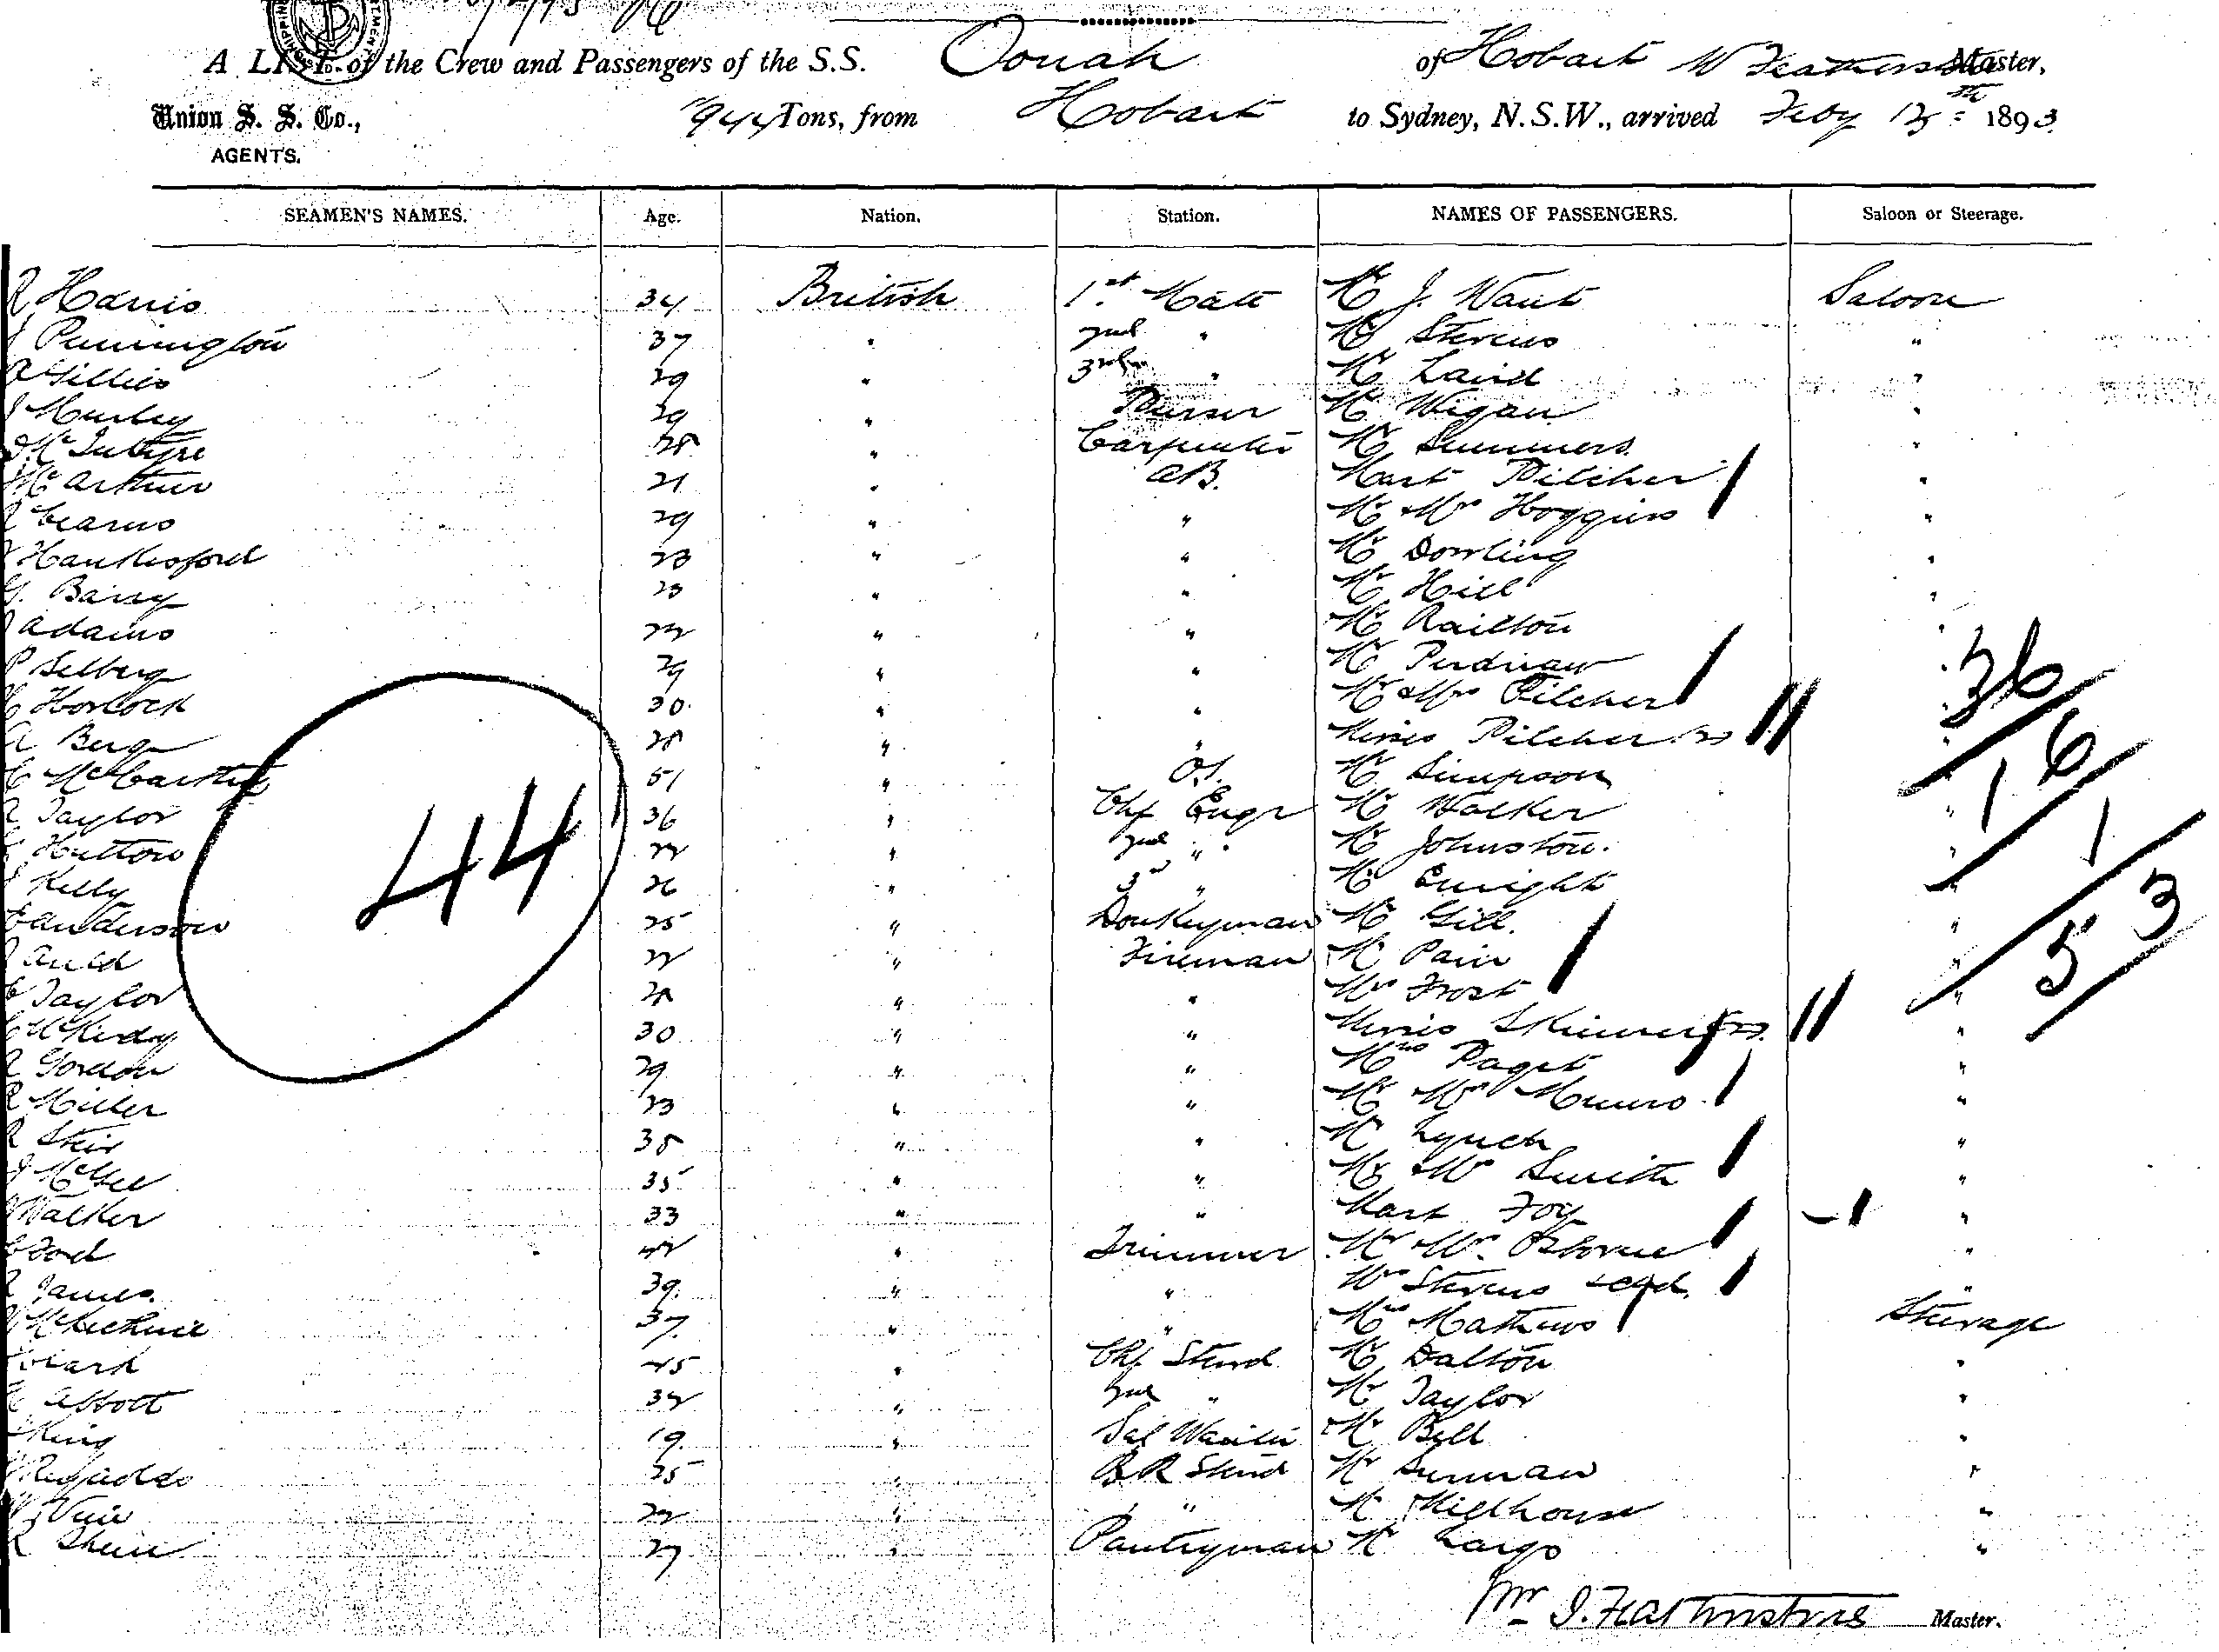 A LIST of the Crew and Passengers of the S.S. Oonah of Hobart W Featherstone Master,
Union S. S. Co., 944 Tons, from Hobart to Sydney, N.S.W., arrived Feby 13th 1893
AGENTS.
SEAMEN'S NAMES. Age. Nation. Station. NAMES OF PASSENGERS. Saloon or Steerage.
R Harris 34 British 1st Mate Mr J. Want Saloon
J Pennington 37 " 2nd " Mr Stevens "
A Gillies 29 " 3rd " Mr Laird "
J Murley 29 " Purser Mr Wigan "
McIntyre 28 " Carpenter Mr Summers "
McArthur 21 " AB. Mast Pilcher "
Cearns 29 " " Mr Mrs Hoggins "
Hankesford 23 " " Mr Dowling "
G. Barry 23 " " Mr Hill "
Adams 22 " " Mr Railton "
P Selberg 29 " " Mr "
Horlock 30 " " Mr & Mrs Pilcher "
A Berg 28 " " Misses Pilcher (2) "
C McCarthy 51 " O.S. Mr Simpson "
Taylor 36 " Chf Engr Mr Walker "
Hutton 22 " 2nd " Mr Johnston "
J Kelly 26 " 3rd " Mr Enright "
Anderson 25 " Donkeyman Mr Gill. "
Auld 22 " Fireman Mr Pain "
Taylor 28 " " Mrs Frost "
McKirdy 30 " " Misses Skinner (2) "
Gordon 29 " " Mrs Paget "
R Miller 23 " " Mr Mrs Munro "
R 38 " " Mr Lynch "
McGee 35 " " Mr & Mrs Smith "
Walker 33 " " Mast Foy "
Ford 42 " Trimmer Mr Mrs Osborne "
James 39 " " Mrs Stevens "
McKechnie 37 " " Mrs Mathews Steerage
Clark 45 " Chf Stewd Mr Dalton "
Abbott 32 " 2nd " Mr Taylor "
King 19 " Sal Waiter Mr Bell "
25 " B R Stewd Mr "
Weir 22 " " Mr Millhouse "
R 27 " Pantryman Mr Largo "
44
36
16
1
53
Master.